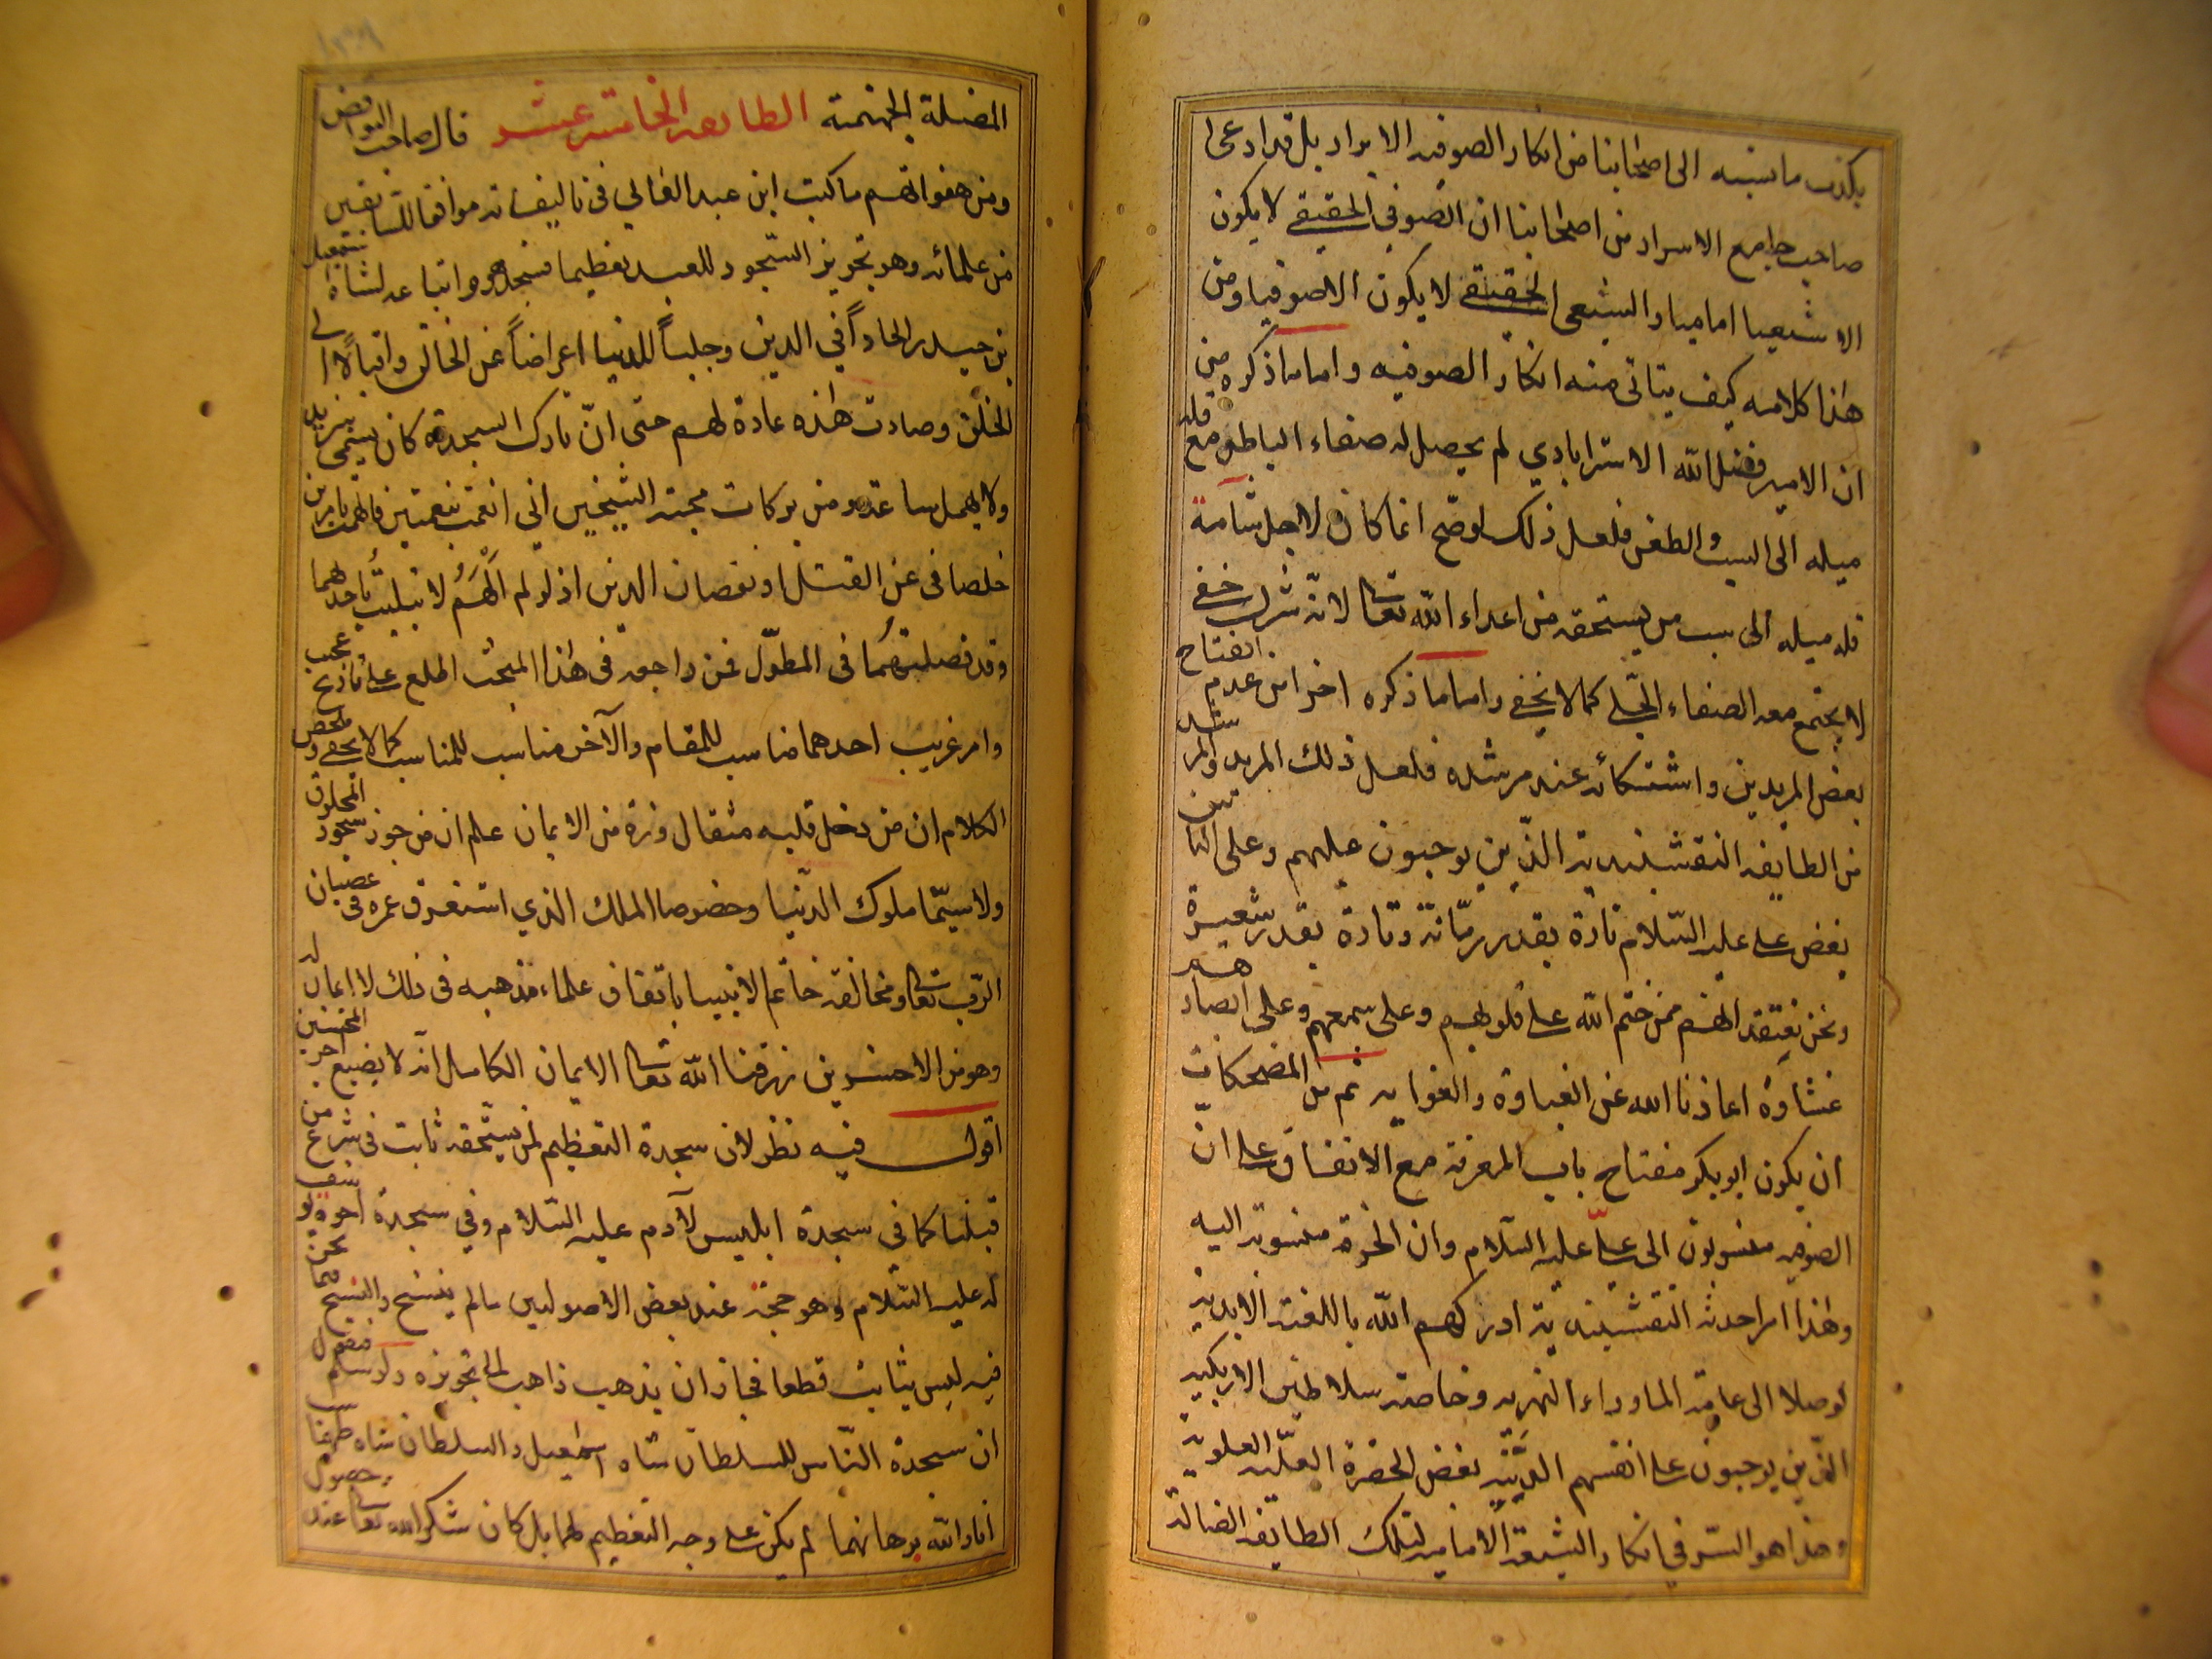 يكذب ما نسبه الى اصحابنا من انكار الصوفيه الابرار بل قد ادعى
صاحب جامع الاسرار من اصحابنا ان الصوفي الحقيقي لا يكون
الا شيعيا اماميا والشيعى الحقيقي لا يكون الا صوفيا ومن
هذا كلامه كيف يتاتى منه انكار الصوفيه واما ما ذكره من
ان الامير فضل الله الاسترابادي لم يحصل له صفاء الباطن مع قلة
ميله الى السب والطعن فلعل ذلك لو صحّ انما كان لاجل شامة
قلة ميله الى سب من يستحقه من اعداء الله تعالى لانه شرك خفي
لا يجتمع معه الصفاء الجلي كما لا يخفى واما ما ذكره اخرا من عدم انفتاح
بعض المريدين واشتكائه عند مرشده فلعل ذلك المريد والمرشد
من الطايفه النقشبنديه الذين يوجبون عليهم وعلى
بغض علي عليه السّلام تارة بقدر رمّانة وتارة بقدر شعيرة
ونحن نعتقد انهم ممن ختم الله على قلوبهم وعلى سمعهم وعلى ابصارهم
غشاوة اعاذنا الله عن الغباوة والغوايه ثم من المضحكات
ان يكون ابو بكر مفتاح باب المعرفة مع الاتفاق على انّ
الصوفيه منسوبون الى عليّ عليه السّلام وان الخرقة منسوبة اليه
وهذا امر احدثه النقشبنديه ادركهم الله باللعنة الابديه
توصلا الى عامة الماوراء النهريه وخاصة سلاطين الازبكيه
الذين يوجبون على انفسهم الدنيّه بغض الحضرة العليّه العلويه
وهذا هو السّر في انكار الشيعة الاماميه لتلك الطايفه الضالة
المضلة الجهنمية الطايفه الخامسة عشر قال صاحب النواقض
ومن هفواتهم ما كتب ابن عبد العالي في تاليفاته موافقا للسابقين
من علمائه وهو تجويز السّجود للعبد تعظيما فسجد هو واتباعه لشاه اسمعيل
بن حيدر الحاداً في الدين وجلباً للدنيا اعراضاً عن الخالق واقبالا الى
الخلق وصارت هذه عادة لهم حتى انّ تارك السجدة كان يسمى بيزيد
ولا يهمل ساعة ومن بركات محبة الشيخين اني انعمت بنعمتين فالهمت بامرين
خلصاني عن القتل او نقصان الدين اذ لو لم اُلْهَمُ لابتليت باحدهما
وقد فصلتهما في المطوّل فمن راجعه في هذا المبحث اطلع على تاريخ عجيب
وامر غريب احدهما مناسب للمقام والآخر مناسب للمناسب كما لا يخفى وملخص
الكلام ان من دخل قلبه مثقال ذرة من الايمان علم ان من جوز سجود المخلوق
ولا سيّما ملوك الدّنيا وخصوصا الملك الذي استغرق عمره في عصيان
الرّب تعالى ومخالفة خاتم الانبيا باتفاق علماء مذهبه في ذلك لا ايمان له
وهو من الاخسرين رزقنا الله تعالى الايمان الكامل انّه لا يضيع اجر المحسنين
اقول فيه نظر لان سجدة التعظيم لمن يستحقه ثابت في شرع من
قبلنا كما في سجدة ابليس لآدم عليه السّلام وفي سجدة اخوة يوسف
له عليه السّلام وهو حجة عند بعض الاصوليين ما لم ينسخ والنسخ فيما نحن
فيه ليس بثابت قطعا فجاز ان يذهب ذاهب الى تجويزه ولو سلم فنقول
ان سجدة النّاس للسلطان شاه اسمعيل والسلطان شاه طهماسب
انار الله برهانهما لم يكن على وجه التعظيم لهما بل كان شكرا لله تعالى عند حصول